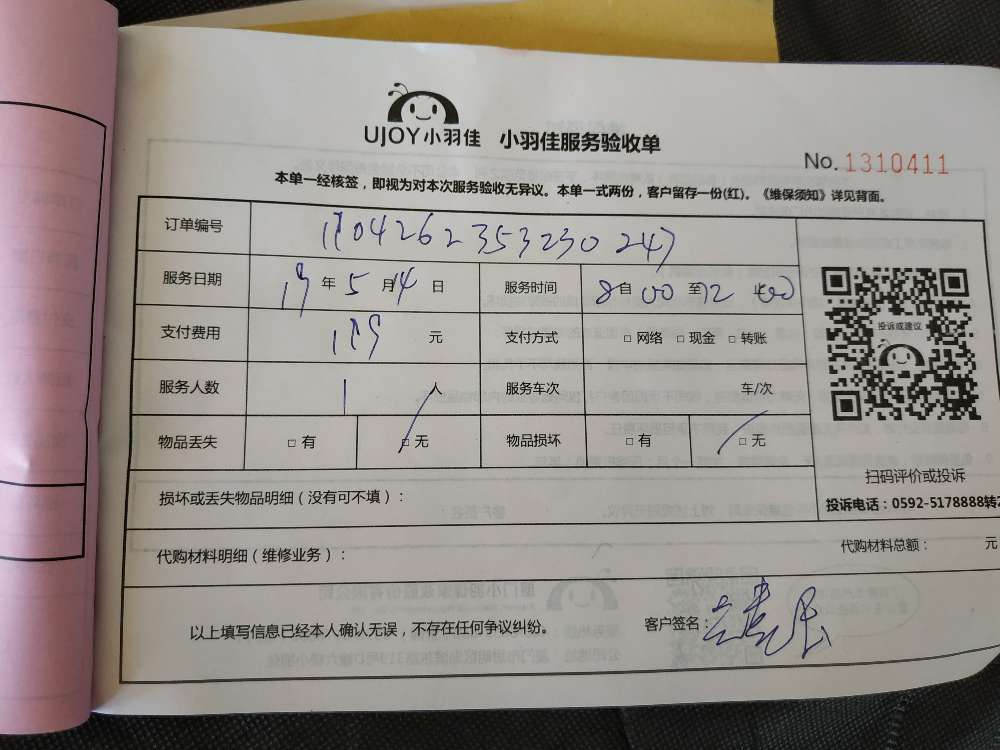 UJOY小羽佳 小羽佳服务验收单
No. 1310411
本单一经核签，即视为对本次服务验收无异议。本单一式两份，客户留存一份(红)。《维保须知》详见背面。
订单编号
服务日期 19 年 5 月 14 日 服务时间 8 自 00 至 12 00
支付费用 元 支付方式 □ 网络 □ 现金 □ 转账
服务人数 1 人 服务车次 车/次
物品丢失 □ 有 □ 无 物品损坏 □ 有 □ 无
投诉或建议
扫码评价或投诉
损坏或丢失物品明细（没有可不填）：
投诉电话：0592-5178888转2
代购材料明细（维修业务）： 代购材料总额： 元
以上填写信息已经本人确认无误，不存在任何争议纠纷。 客户签名：